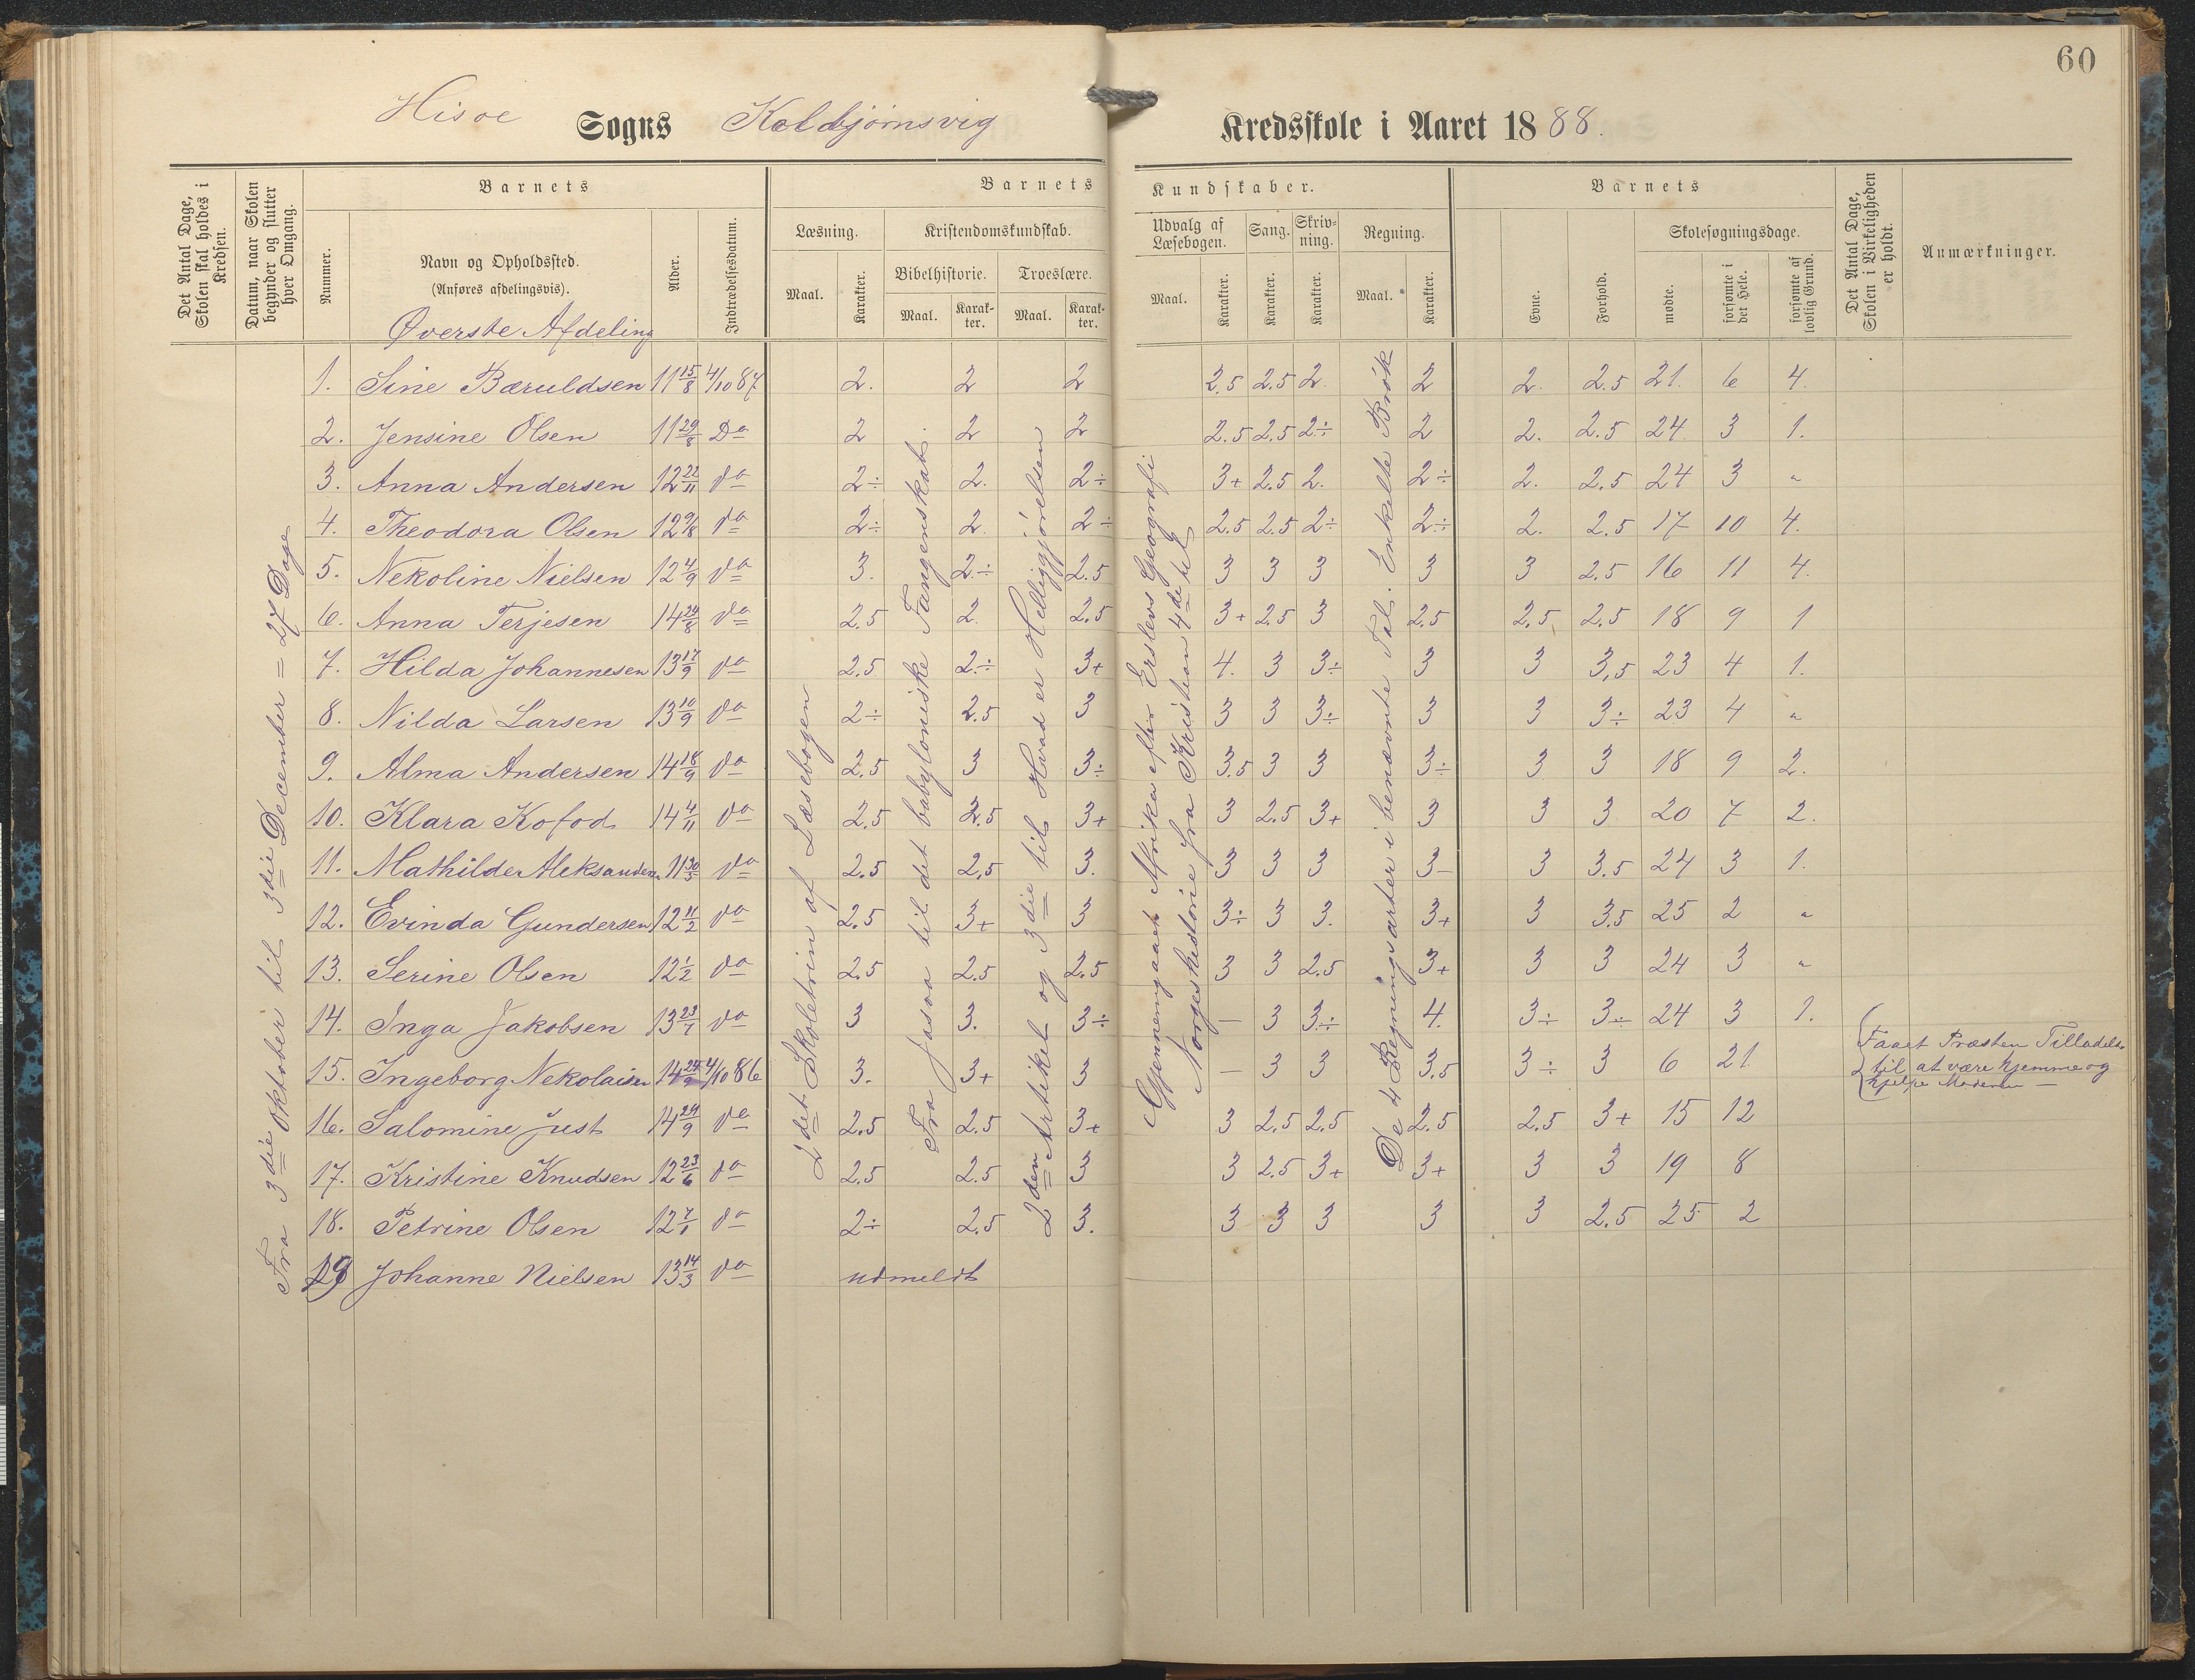 60
Hisøe Sogns Kolbjørnsvig Kredsskole i Aaret 1888.
Det Antal Dage, Skolen skal holdes i Kredsen.
Datum, naar Skolen begynder og slutter hver Omgang.
Barnets
Nummer.
Navn og Opholdssted.
(Anføres afdelingsvis).
Øverste Afdeling
Alder.
Indtrædelsesdatum.
Barnets Kundskaber.
Læsning.
Maal.
Karakter.
Kristendomskundskab.
Bibelhistorie.
Maal.
Karakter.
Troeslære.
Maal.
Karakter.
Udvalg af Læsebogen.
Maal.
Karakter.
Sang.
Karakter.
Skrivning.
Karakter.
Regning.
Maal.
Karakter.
Barnets
Evne.
Forhold.
Skolesøgningsdage.
mødte.
forsømte i det Hele.
forsømte af lovlig Grund.
Det Antal Dage, Skolen i Virkeligheden er holdt.
Anmærkninger.
Fra 3die Oktober til 3die December = 27 Dage
2det Skoletrin af Læsebogen
Fra Josva til det babyloniske Fangenskab.
2den Artikel og 3die til Hvad er Helliggjørelsen
Gjennemgaaet Afrika efter Erslevs Geografi
Norgeshistorie fra Kristian 4de til
De 4 Regningsarter i benævnte Tal. Enkelte Brøk
1. Sine Bæruldsen 11 15/8 4/10 87 2. 2 2 2.5 2.5 2. 2 2. 2.5 21. 6 4.
2. Jensine Olsen 11 29/8 Do 2 2 2 2.5 2.5 2÷ 2 2. 2.5 24 3 1.
3. Anna Andersen 12 22/11 do 2÷ 2. 2÷ 3+ 2.5 2. 2÷ 2. 2.5 24 3 "
4. Theodora Olsen 12 9/8 do 2÷ 2. 2÷ 2.5 2.5 2÷ 2÷ 2. 2.5 17 10 4.
5. Nekoline Nielsen 12 4/9 do 3. 2÷ 2.5 3 3 3 3 3 2.5 16 11 4.
6. Anna Terjesen 14 24/8 do 2.5 2. 2.5 3+ 2.5 3 2.5 2.5 2.5 18 9 1
7. Hilda Johannesen 13 17/9 do 2.5 2÷ 3+ 4. 3 3÷ 3 3 3,5 23 4 1.
8. Nilda Larsen 13 10/9 do 2÷ 2.5 3 3 3 3÷ 3 3 3÷ 23 4 "
9. Alma Andersen 14 18/9 do 2.5 3 3÷ 3.5 3 3 3÷ 3 3 18 9 2.
10. Klara Kofod 14 4/11 do 2.5 2.5 3+ 3 2.5 3+ 3 3 3 20 7 2.
11. Mathilde Aleksandersn 11 30/3 do 2.5 2,5 3. 3 3 3 3- 3 3.5 24 3 1.
12. Evinda Gundersen 12 11/2 do 2.5 3+ 3 3÷ 3 3. 3+ 3 3.5 25 2 "
13. Serine Olsen 12 1/2 do 2.5 2.5 2.5 3 3 2.5 3+ 3 3 24 3 "
14. Inga Jakobsen 13 23/7 do 3 3. 3÷ — 3 3÷ 4. 3÷ 3÷ 24 3 1.
15. Ingeborg Nekolaisen 14 24/9 4/10 86 3. 3+ 3 — 3 3 3.5 3÷ 3 6 21.
Faaet Præsten Tilladelse
til at være hjemme og
hjelpe Moderen —
16. Salomine Just 14 29/9 do 2.5 2.5 3+ 3 2.5 2.5 2.5 2.5 3+ 15 12
17. Kristine Knudsen 12 23/6 do 2.5 2.5 3 3 2.5 3+ 3+ 3 3 19 8
18. Petrine Olsen 12 7/1 do 2÷ 2.5 3. 3 3 3 3 3 2.5 25 2
19 Johanne Nielsen 13 14/3 do udmeldt